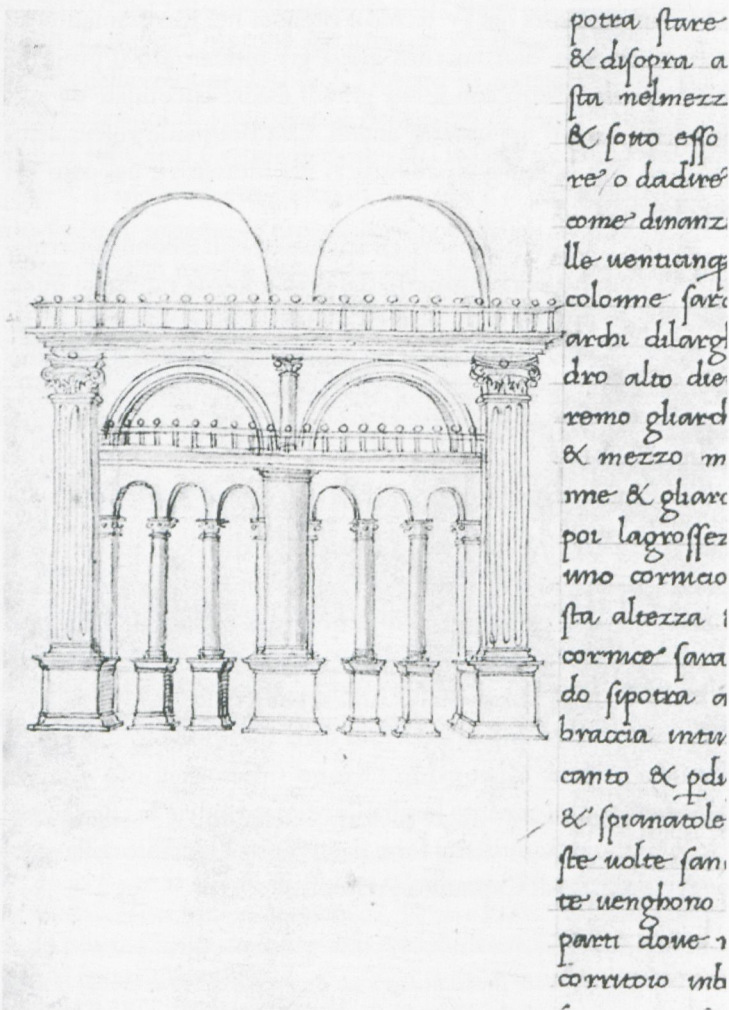 potra stare
& disopra a
sta nelmezz
& sotto esso
re / o dadire
come dinanz
lle uenticinq
colonne sara
archi dilargh
dro alto die
remo gliarch
& mezzo m
nne & gliarc
poi lagrossez
uno cornicio
sta altezza i
cornice sara
do sipotra a
braccia intu
canto & pdi
& spianatole
ste uolte san
te uenghono
parti doue
corritoio inb